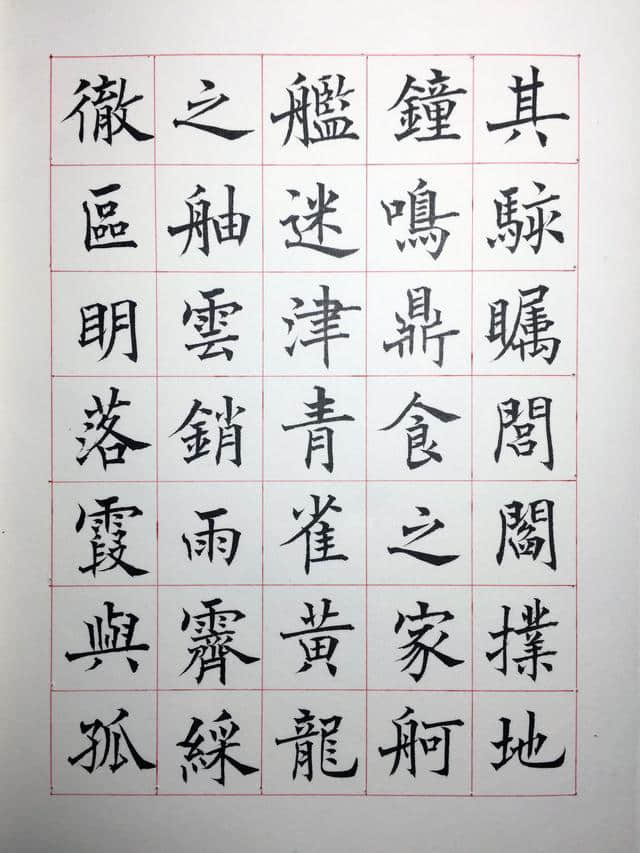 其駭瞩閭閻撲地
鐘鳴鼎食之家舸
艦迷津青雀黄龍
之舳雲銷雨霽綵
徹區眀落霞與孤